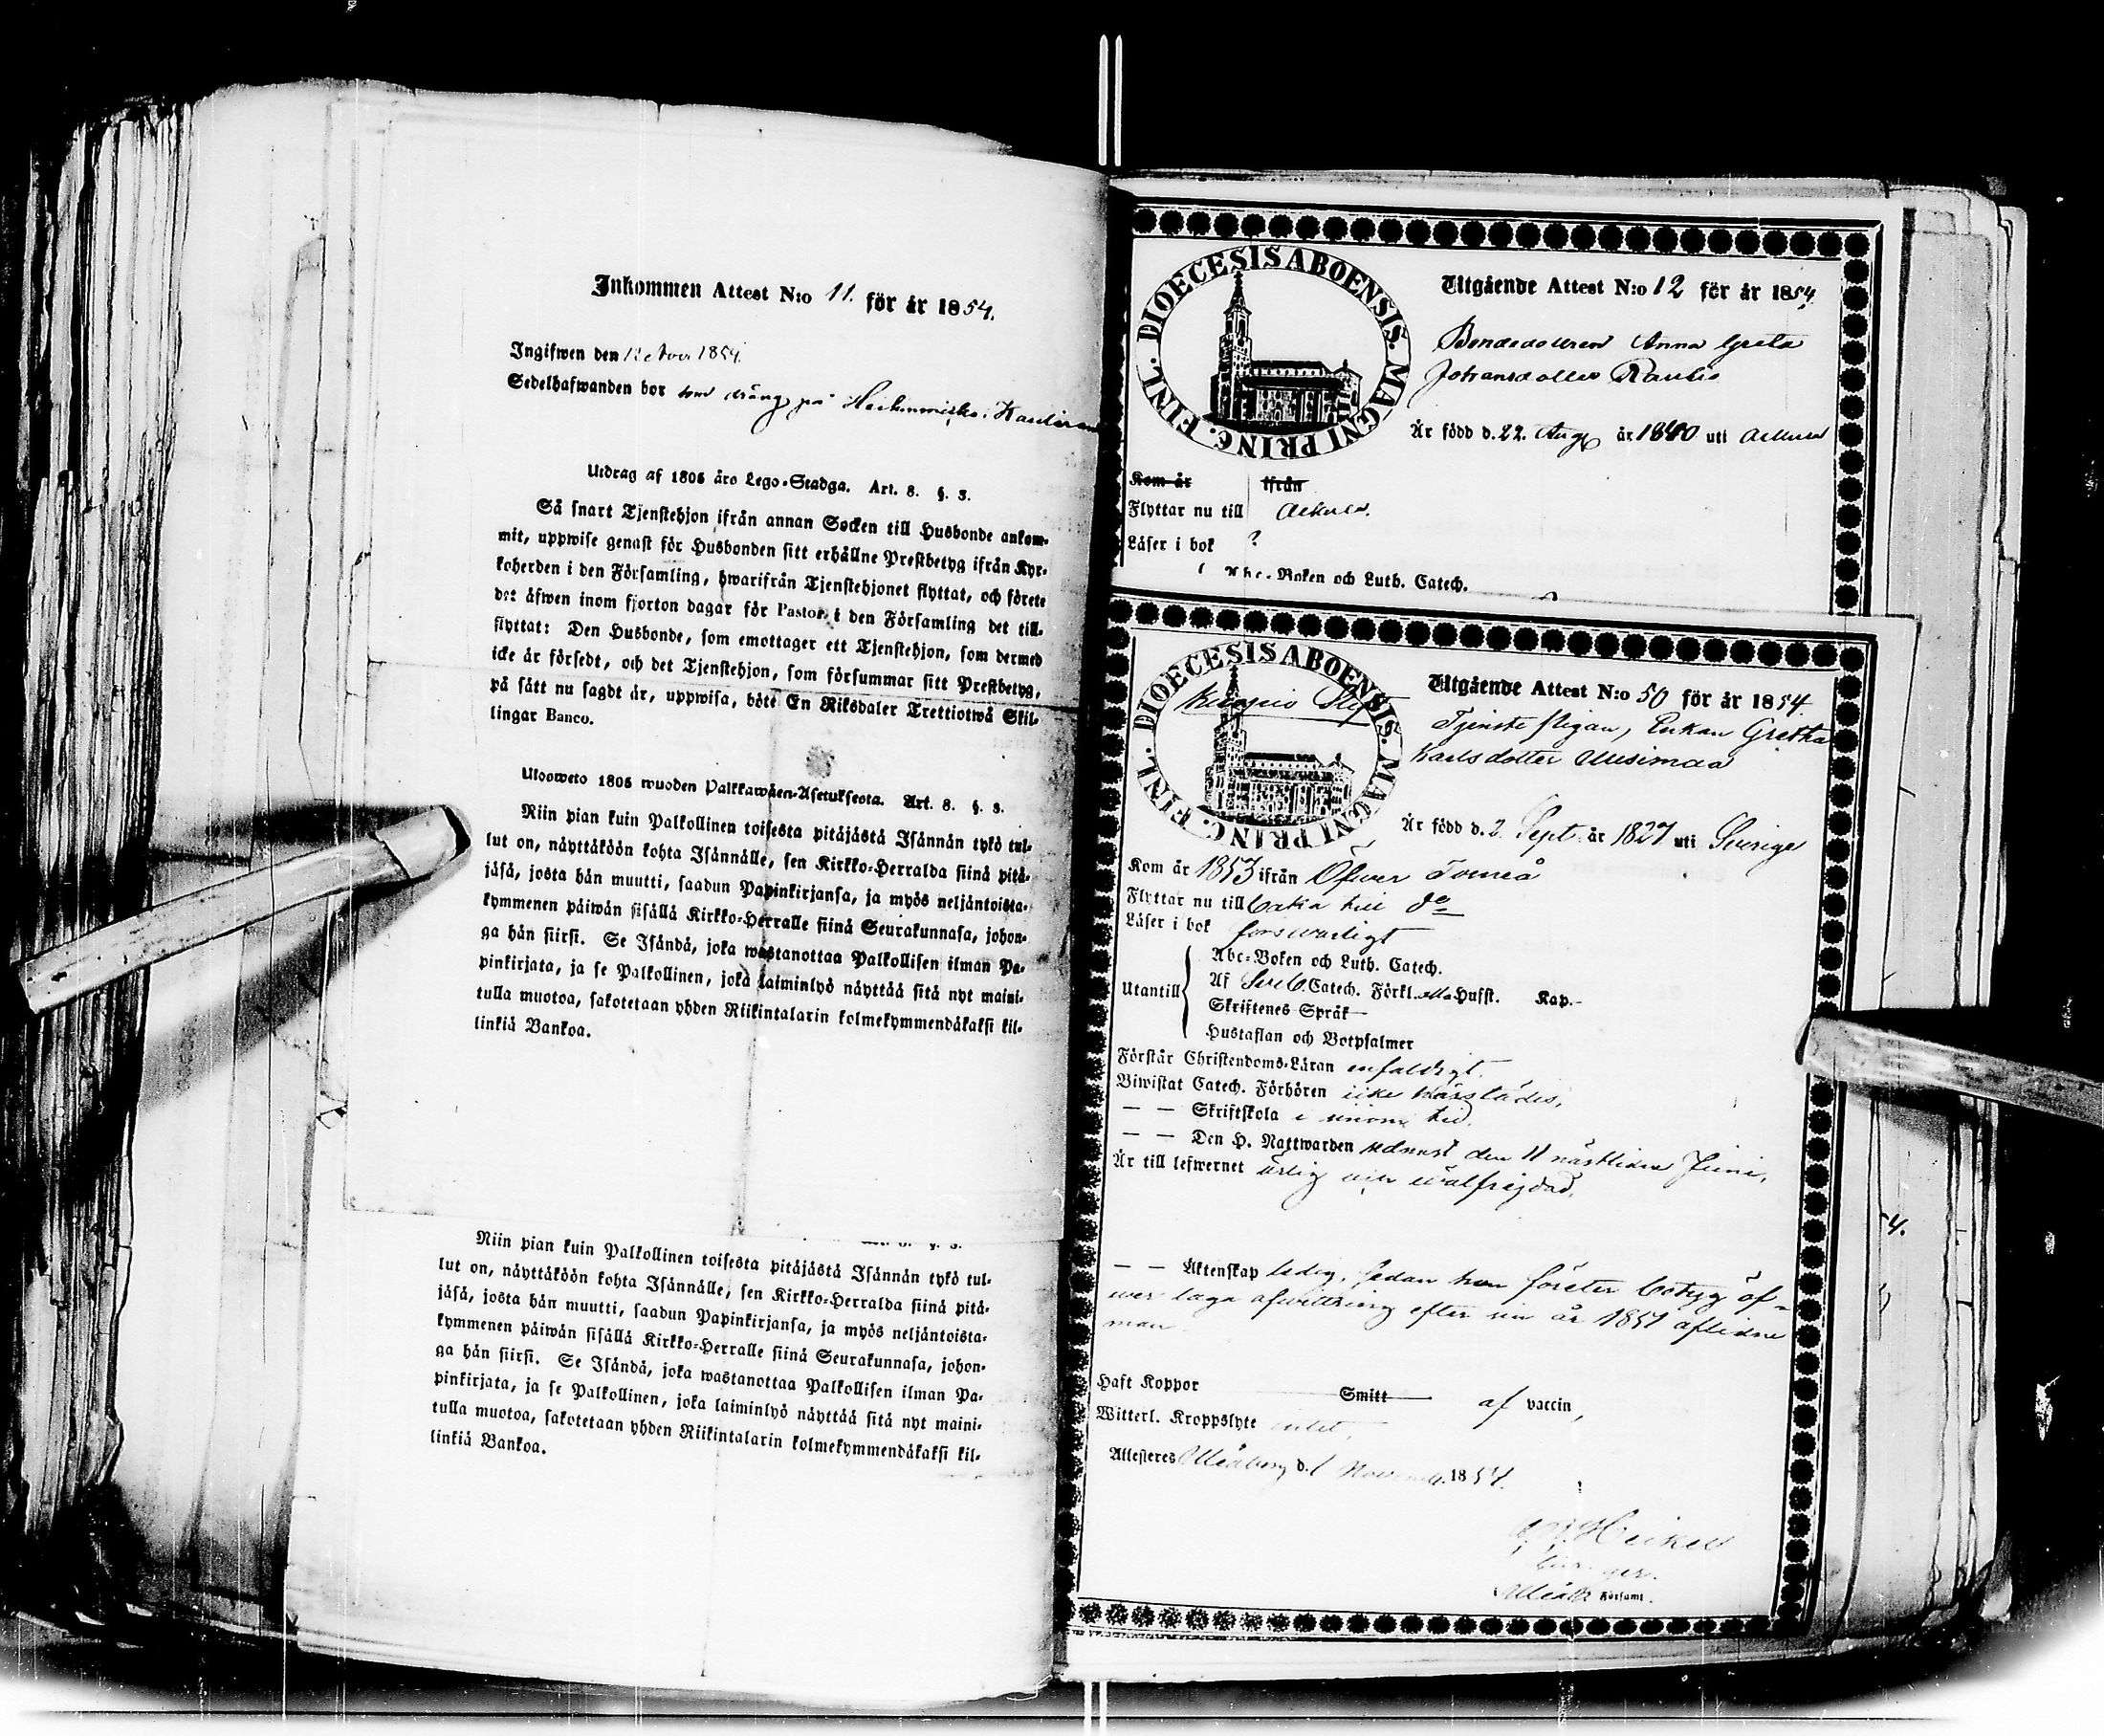 Inkommen Attest N:o 11. för år 1854.
Ingifwen den 12 Nov 1854.
Sedelhafwanden bor som dräng på
Utdrag af 1805 års Lego-Stadga. Art. 8. §. 3.
Så snart Tjenstehjon ifrån annan Socken till Husbonde ankom-
mit, uppwise genast för Husbonden sitt erhållne Prestbetyg ifrån Kyr-
koherden i den Församling, hwarifrån Tjenstehjonet flyttat, och förete
det äfwen inom fjorton dagar för Pastor i den Församling det till-
flyttat: Den Husbonde, som emottager ett Tjenstehjon, som dermed
icke är försedt, och det Tjenstehjon, som försummar sitt Prestbetyg,
på sätt nu sagdt är, uppwisa, böte En Riksdaler Trettiotwå Skil-
lingar Banco.
Ulosweto 1805 wuoden Palkkawäen-Asetuksesta. Art. 8. §. 3.
Niin pian kuin Palkollinen toisesta pitäjästä Isännän tykö tul-
lut on, näyttäköön kohta Isännälle, sen Kirkko-Herralda siinä pitä-
jäsä, josta hän muutti, saadun Papinkirjansa, ja myös neljäntoista-
kymmenen päiwän sisällä Kirkko-Herralle siinä Seurakunnasa, johon-
ga hän siirsi. Se Isändä, joka wastanottaa Palkollisen ilman Pa-
pinkirjata, ja se Palkollinen, joka laiminlyö näyttää sitä nyt maini-
tulla muotoa, sakotetaan yhden Riikintalarin kolmekymmendäkaksi kil-
linkiä Bankoa.
Niin pian kuin Palkollinen toisesta pitäjästä Isännän tykö tul-
lut on, näyttäköön kohta Isännälle, sen Kirkko-Herralda siinä pitä-
jäsä, josta hän muutti, saadun Papinkirjansa, ja myös neljäntoista-
kymmenen päiwän sisällä Kirkko-Herralle siinä Seurakunnasa, johon-
ga hän siirsi. Se Isändä, joka wastanottaa Palkollisen ilman Pa-
pinkirjata, ja se Palkollinen, joka laiminlyö näyttää sitä nyt maini-
tulla muotoa, sakotetaan yhden Riikintalarin kolmekymmendäkaksi kil-
linkiä Bankoa.
DIOECESIS ABOENSIS. MAGNI PRINC. FINL.
Utgående Attest N:o 12 för år 1854.
Bondedottren Anna Greta
Johansdotter Rautio
Är född d. 22. Aug är 1840 uti
Kom år ifrån
Flyttar nu till
Läser i bok ?
Abc-Boken och Luth. Catech.
DIOECESIS ABOENSIS. MAGNI PRINC. FINL.
Utgående Attest N:o 50 för år 1854.
Tjenste pigan, Enkan Gretha
Karlsdotter Uusimaa
Är född d. 2. Sept. år 1827 uti Sverige
Kom år 1853 ifrån Öfver Torneå
Flyttar nu till
Läser i bok försvarligt
Utantill
Abc-Boken och Luth. Catech.
Af Catech. Förkl. Hufst. Kap.
Skriftenes Språk
Hustaflan och Botpsalmer
Förstår Christendoms-Läran enfaldigt.
Biwistat Catech. Förhören icke härstädes,
— — Skriftskola i sinom tid,
— — Den H. Nattwarden sednast den 11 nästlidne Juni,
Är till lefwernet ärlig och wälfrejdad,
— — Äktenskap ledig, sedan hon företer betyg öf-
wer laga afwittring efter sin år 1851 aflidne
man
Haft Koppor Smitt af vaccin,
Witterl. Kroppslyte intet,
Attesteres Uleåborg d. 1 1854.
Församl.